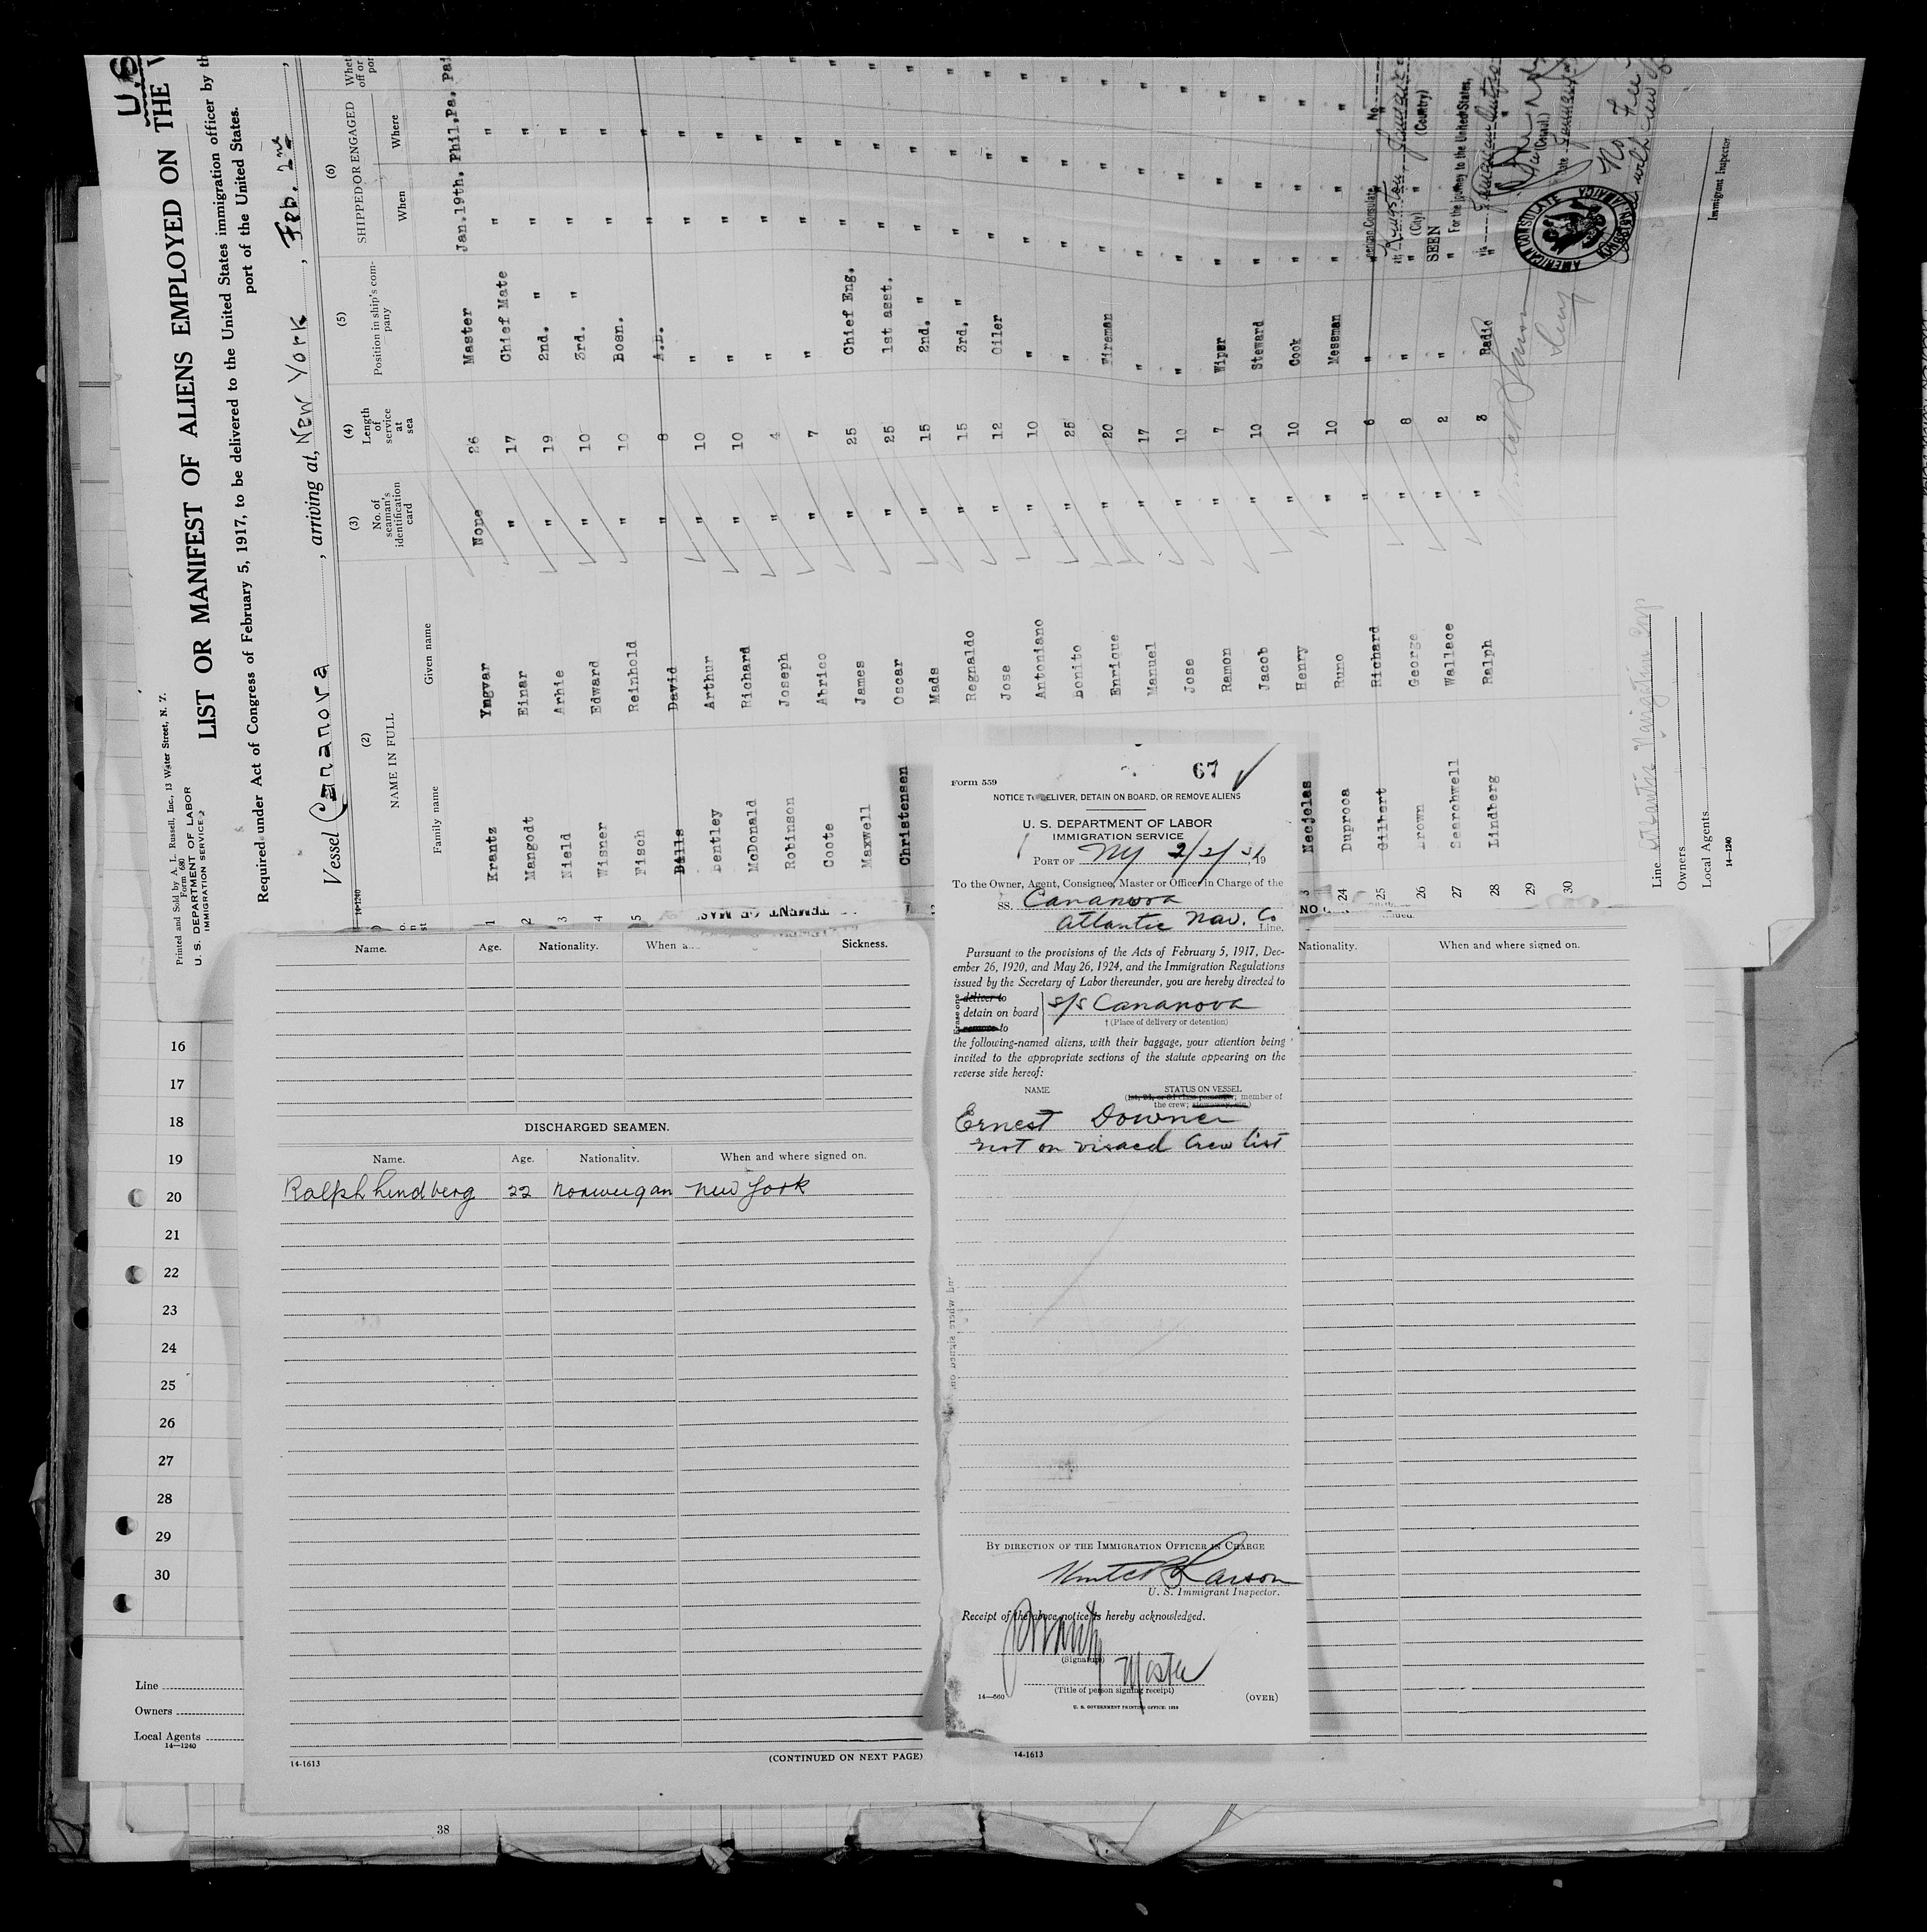 U.S
Printed and Sold by A. L. Russell, Inc., 13 Water Street, N. Y.
Form 680
U. S. DEPARTMENT OF LABOR
IMMIGRATION SERVICE
LIST OR MANIFEST OF ALIENS EMPLOYED ON THE V
Required under Act of Congress of February 5, 1917, to be delivered to the United States immigration officer by th
port of the United States.
Vessel Cananova, arriving at, New York, Feb. 2nd,
14-1240
(2) (3) (4) (5) (6)
NAME IN FULL
No. of seaman's identification card
Length of service at sea
Position in ship's company
SHIPPED OR ENGAGED
Family name Given name When Where
1 Krantz Yngvar None 26 Master Jan.19th. Phil.Pa. Pai
2 Mangodt Einar " 17 Chief Mate " "
3 Nield Arhie " 19 2nd. " " "
4 Wisner Edward " 10 3rd. " " "
5 Fisch Reinhold " 10 Bosn. " "
Bills David " 8 A.B. " "
Bentley Arthur " 10 " " "
McDonald Richard " 10 " " "
Robinson Joseph " 4 " " "
Coote Abrico " 7 " " "
Maxwell James " 25 Chief Eng. " "
Christensen Oscar " 25 1st asst. " "
Mads " 15 2nd. " " "
Regnaldo " 15 3rd. " " "
Jose " 12 Oiler " "
Antoniano " 10 " " "
Bonito " 25 " " "
Enrique " 20 Fireman " "
Manuel " 17 " " "
Jose " 10 " " "
Ramon " 7 Wiper " "
Jacob " 10 Steward " "
Necjolas Henry " 10 Cook " "
24 Duprooa Runo " 10 Messman " "
25 Gilbert Richard " 6 " "
26 Brown George " 8 " "
27 Searchwell Wallace " 2 " "
28 Lindberg Ralph " 3 Radio "
29
30
American Consulate No.
at Kingston Jamaica
(City) (Country)
SEEN
For the journey to the United States,
AMERICAN CONSULATE
KINGSTON, JAMAICA
No Fee
Immigrant Inspector.
Line Atlantic Navigation Corp
Owners
Local Agents
14-1240
Name. Age. Nationality. When a Sickness.
DISCHARGED SEAMEN.
Name. Age. Nationality. When and where signed on.
Ralph Lindberg 22 Norweigan New York
14-1613
(CONTINUED ON NEXT PAGE)
67
Form 559
NOTICE TO DELIVER, DETAIN ON BOARD, OR REMOVE ALIENS
U. S. DEPARTMENT OF LABOR
IMMIGRATION SERVICE
PORT OF NY 2/2/31, 19
To the Owner, Agent, Consignee, Master or Officer in Charge of the
SS. Cananova
Atlantic Nav. Co Line.
Pursuant to the provisions of the Acts of February 5, 1917, Dec-
ember 26, 1920, and May 26, 1924, and the Immigration Regulations
issued by the Secretary of Labor thereunder, you are hereby directed to
Erase one
deliver to
detain on board s/s Cananova
remove to
† (Place of delivery or detention)
the following-named aliens, with their baggage, your attention being
invited to the appropriate sections of the statute appearing on the
reverse side hereof:
NAME STATUS ON VESSEL
(1st, 2d, or 3d class passenger; member of
the crew; stowaway, etc.)
Ernest Downer
not on visaed crew list
BY DIRECTION OF THE IMMIGRATION OFFICER IN CHARGE
Larson
U. S. Immigrant Inspector.
Receipt of the above notice is hereby acknowledged.
(Signature)
Master
(Title of person signing receipt)
14—660
(OVER)
U. S. GOVERNMENT PRINTING OFFICE
Nationality. When and where signed on.
14-1613
16
17
18
19
20
21
22
23
24
25
26
27
28
29
30
Line
Owners
Local Agents
14—1240
38